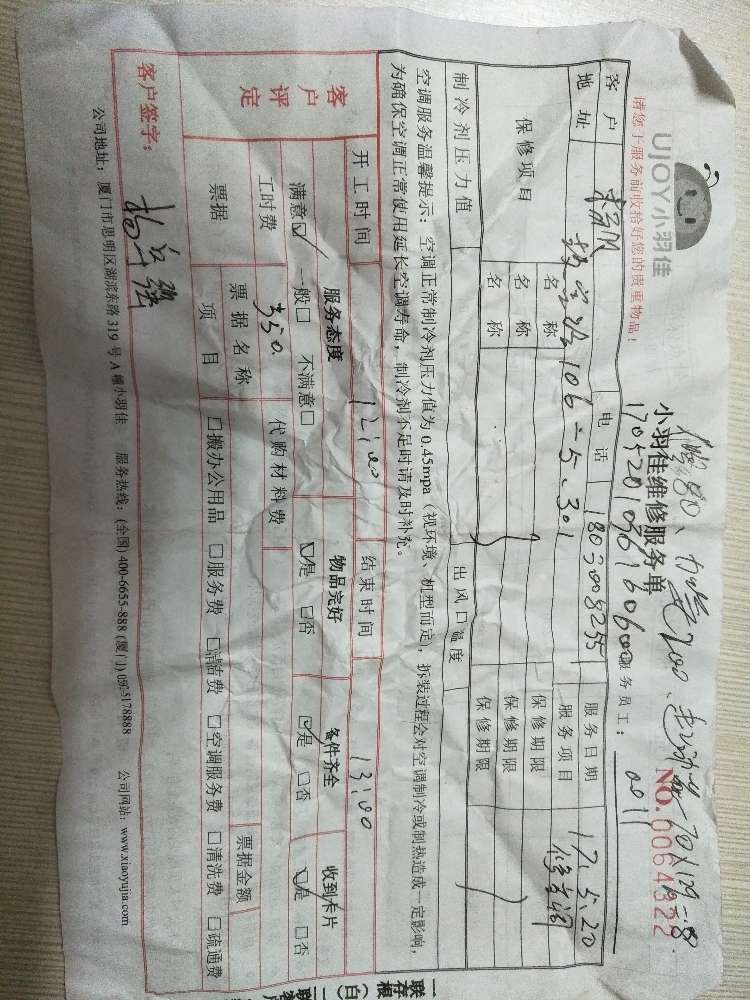 UJOY小羽佳
请您于服务前收拾好您的贵重物品!
小羽佳维修服务单
NO. 0064522
服务员工:
客户
电话 18030082551
服务日期 17.5.20
地址 106-5.301
服务项目 修空调
保修项目
名称 保修期限
名称 保修期限
名称 保修期限
制冷剂压力值 出风口温度
空调服务温馨提示:空调正常制冷剂压力值为 0.45mpa(视环境、机型而定),拆装过程会对空调制冷或制热造成一定影响,
为确保空调正常使用延长空调寿命,制冷剂不足时请及时补充。
开工时间 12:00 结束时间 13:00
客户评定
服务态度 物品完好 备件齐全 收到卡片
满意☑ 一般□ 不满意□ ☑是 □否 ☑是 □否 ☑是 □否
工时费 350 代购材料费
票据 票据名称 票据金额
项目 □搬办公用品 □服务费 □清洁费 □空调服务费 □清洗费 □疏通费
客户签字:
公司地址:厦门市思明区湖滨东路 319 号 A 幢小羽佳 服务热线:(全国) 400-6655-888 (厦门) 0592-5178888 公司网站:www.xiaoyujia.com